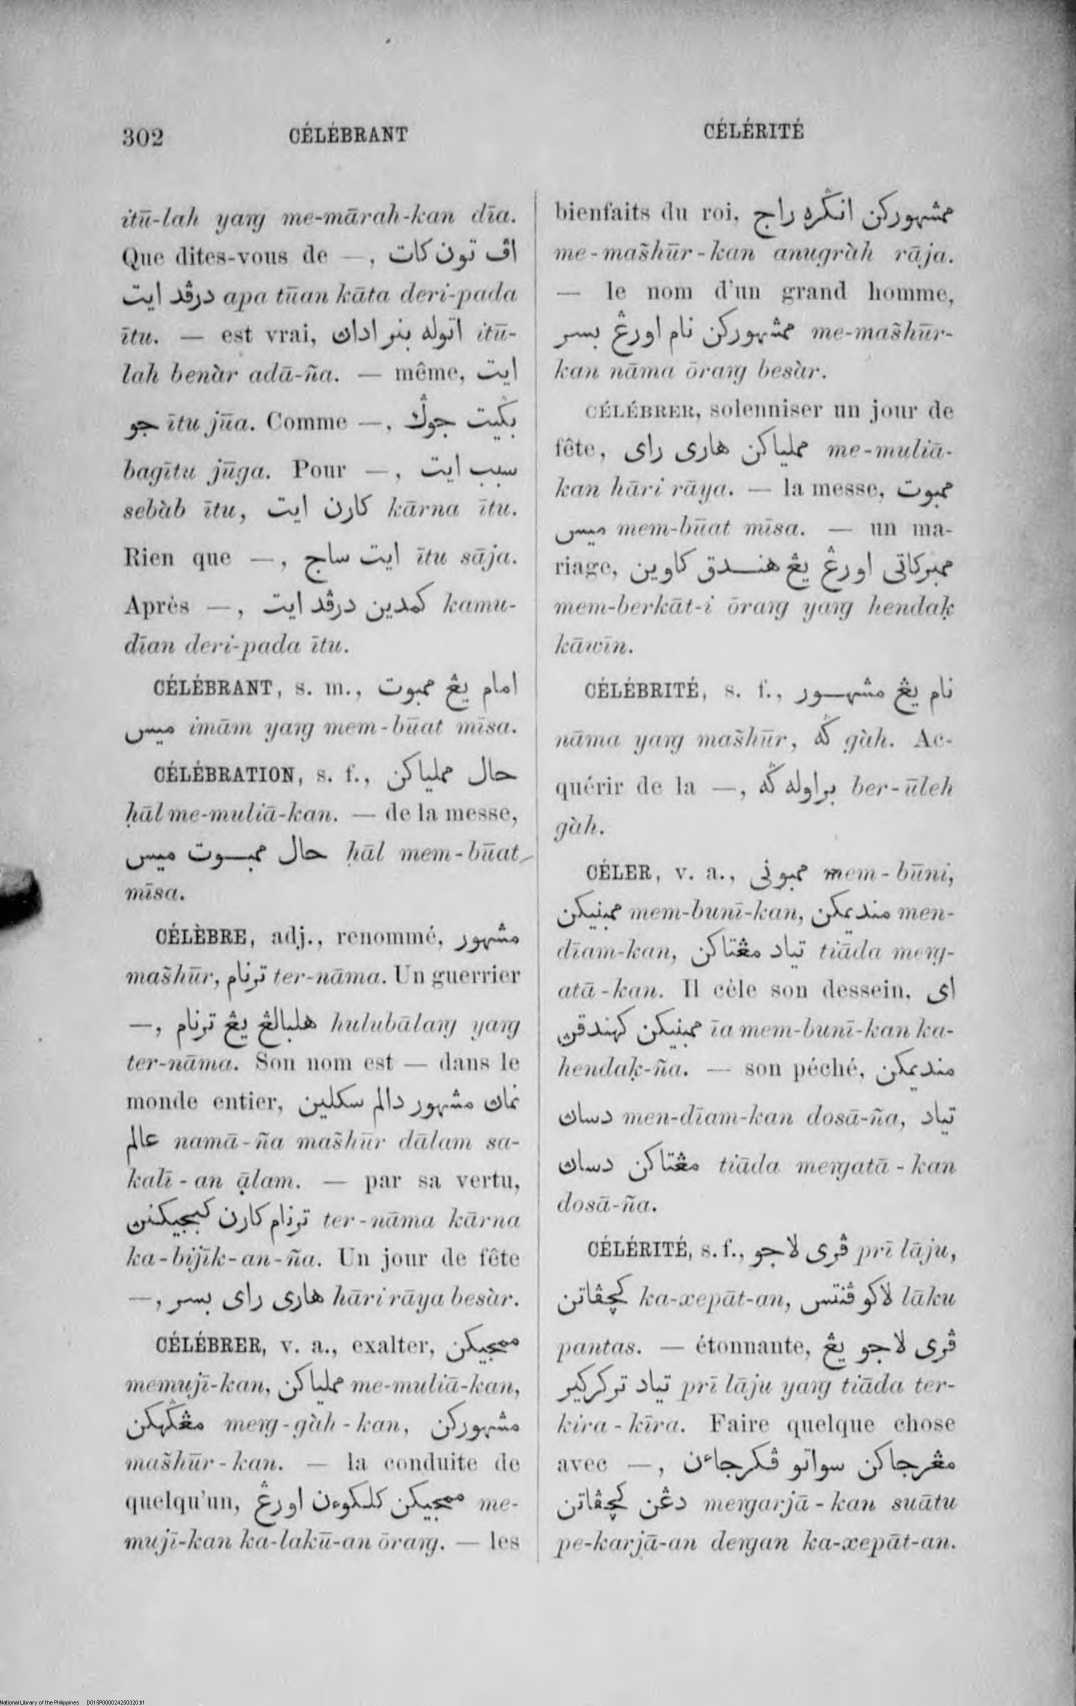 302 CÉLÉBRANT CÉLÉRITÉ
itū-lah yaņg me-mārah-kan dīa.
Que dites-vous de —, اڤ تون كات
درڤد ايت apa tūan kāta deri-pada
ītu. — est vrai, اتوله بنر اداڽ itū-
lah benàr adā-ña. — même, ايت
جو ītu jūa. Comme —, بݢيت جوݢ
bagītu jūga. Pour —, سبب ايت
sebàb ītu, كارن ايت kārna ītu.
Rien que —, ايت ساج ītu sāja.
Après —, كمدين درڤد ايت kamu-
dīan deri-pada ītu.
CÉLÉBRANT, s. m., امام يڠ ممبوت
ميس imām yaņg mem-būat mīsa.
CÉLÉBRATION, s. f., حال مملياكن
ḥāl me-muliā-kan. — de la messe,
حال ممبوت ميس ḥāl mem-būat
mīsa.
CÉLÈBRE, adj., renommé, مشهور
mašhūr, ترنام ter-nāma. Un guerrier
—, هلبالڠ يڠ ترنام hulubālaņg yaņg
ter-nāma. Son nom est — dans le
monde entier, نماڽ مشهور دالم سكلين
عالم namā-ña mašhūr dālam sa-
kalī-an ạ̄lam. — par sa vertu,
ترنام كارن كبجيكنڽ ter-nāma kārna
ka-bijīk-an-ña. Un jour de fête
—, هاري راي بسر hāri rāya besàr.
CÉLÉBRER, v. a., exalter, ممجيكن
memujī-kan, مملياكن me-muliā-kan,
مڠݢهكن meņg-gàh-kan, مشهوركن
mašhūr-kan. — la conduite de
quelqu'un, ممجيكن كلكوءن اورڠ me-
mujī-kan ka-lakū-an ōraņg. — les
bienfaits du roi, ممشهوركن انݢره راج
me-mašhūr-kan anugràh rāja.
— le nom d'un grand homme,
ممشهوركن نام اورڠ بسر me-mašhūr-
kan nāma ōraņg besàr.
CÉLÉBRER, solenniser un jour de
fête, مملياكن هاري راي me-muliā-
kan hāri rāya. — la messe, ممبوت
ميس mem-būat mīsa. — un ma-
riage, ممبركاتي اورڠ يڠ هندق كاوين
mem-berkāt-i ōraņg yaņg hendaḳ
kāwīn.
CÉLÉBRITÉ, s. f., نام يڠ مشهور
nāma yaņg mašhūr, ݢه gàh. Ac-
quérir de la —, براوله ݢه ber-ūleh
gàh.
CÉLER, v. a., ممبوني mem-būni,
ممبنيكن mem-bunī-kan, منديمكن men-
dīam-kan, تياد مڠتاكن tiāda meņg-
atā-kan. Il cèle son dessein, اي
ممبنيكن كهندقڽ īa mem-bunī-kan ka-
hendaḳ-ña. — son péché, منديمكن
دساڽ men-dīam-kan dosā-ña, تياد
مڠتاكن دساڽ tiāda meņgatā-kan
dosā-ña.
CÉLÉRITÉ, s. f., ڤري لاجو prī lāju,
كچڤاتن ka-xepāt-an, لاكو ڤنتس lāku
pantas. — étonnante, ڤري لاجو يڠ
تياد تركركير prī lāju yaņg tiāda ter-
kira-kīra. Faire quelque chose
avec —, مڠرجاكن سواتو ڤكرجاءن
دڠن كچڤاتن meņgarjā-kan suātu
pe-karjā-an deņgan ka-xepāt-an.
National Library of the Philippines